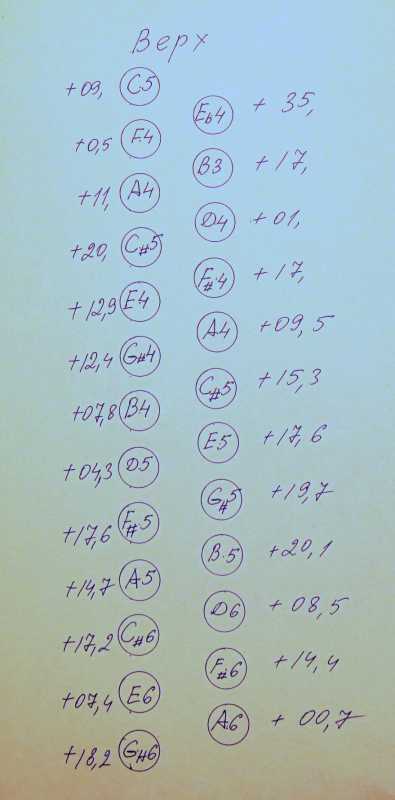 Верх
+09, C5
E♭4 + 35,
+0,5 F4
B3 + 17,
+11, A4
D4 + 01,
+20, C#5
F#4 + 17,
+12,9 E4
A4 +09,5
+12,4 G#4
C#5 +15,3
+07,8 B4
E5 +17,6
+04,3 D5
G#5 +19,7
+17,6 F#5
B5 +20,1
+14,7 A5
D6 + 08,5
+17,2 C#6
F#6 +14,4
+07,4 E6
A6 + 00,7
+18,2 G#6